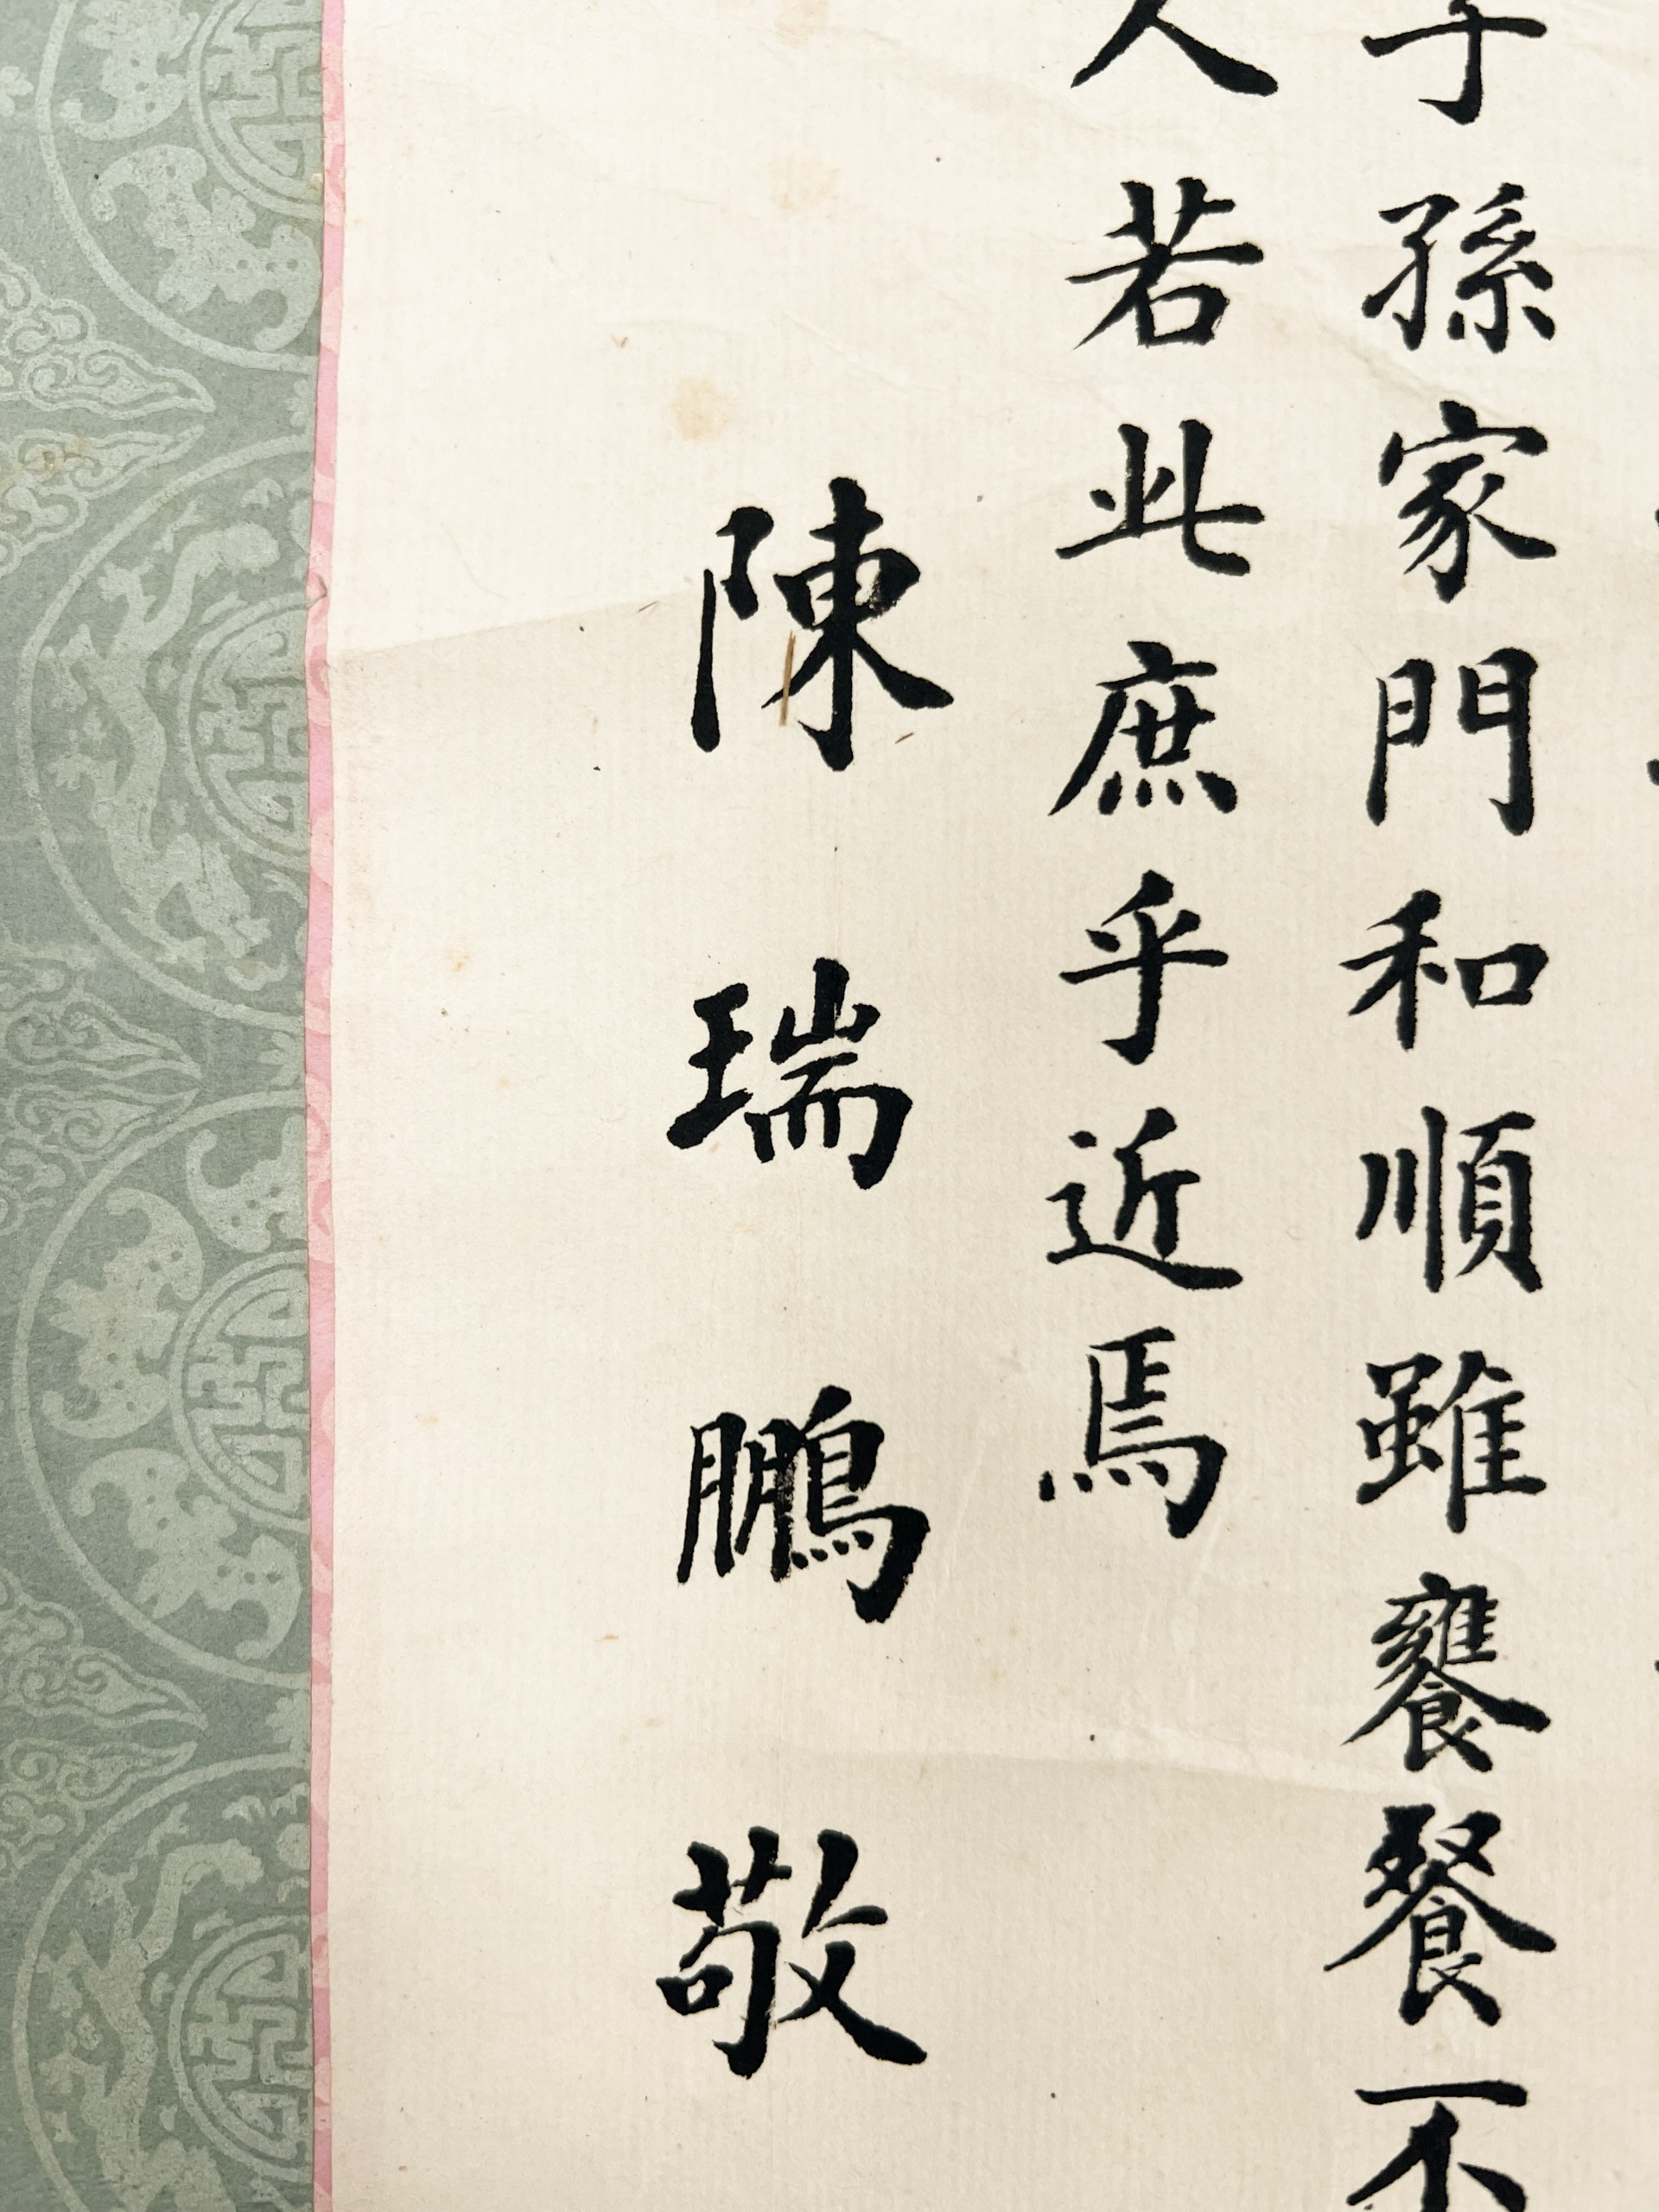 子孫家門和順雖饔餐不
人若此庶乎近焉
陳瑞鵬敬